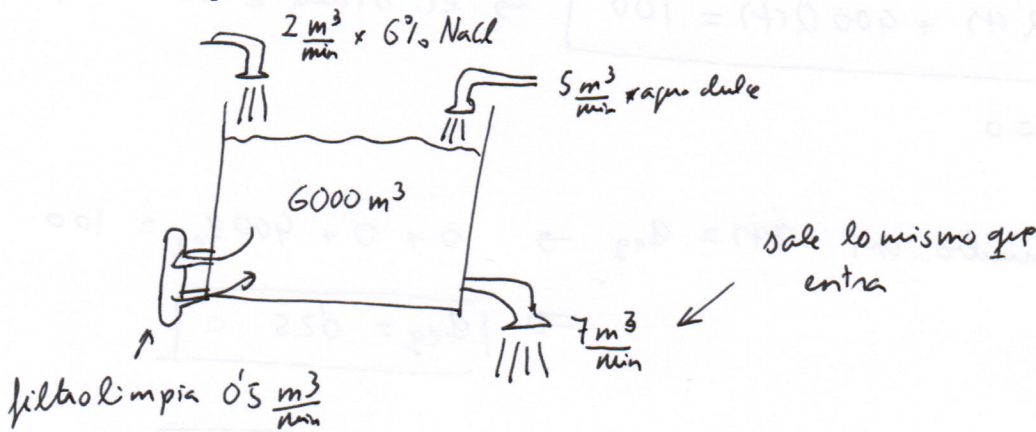 2 m³/min × 6% NaCl
5 m³/min × agua dulce
6000 m³
sale lo mismo que
entra
7 m³/min
filtro limpia 0'5 m³/min